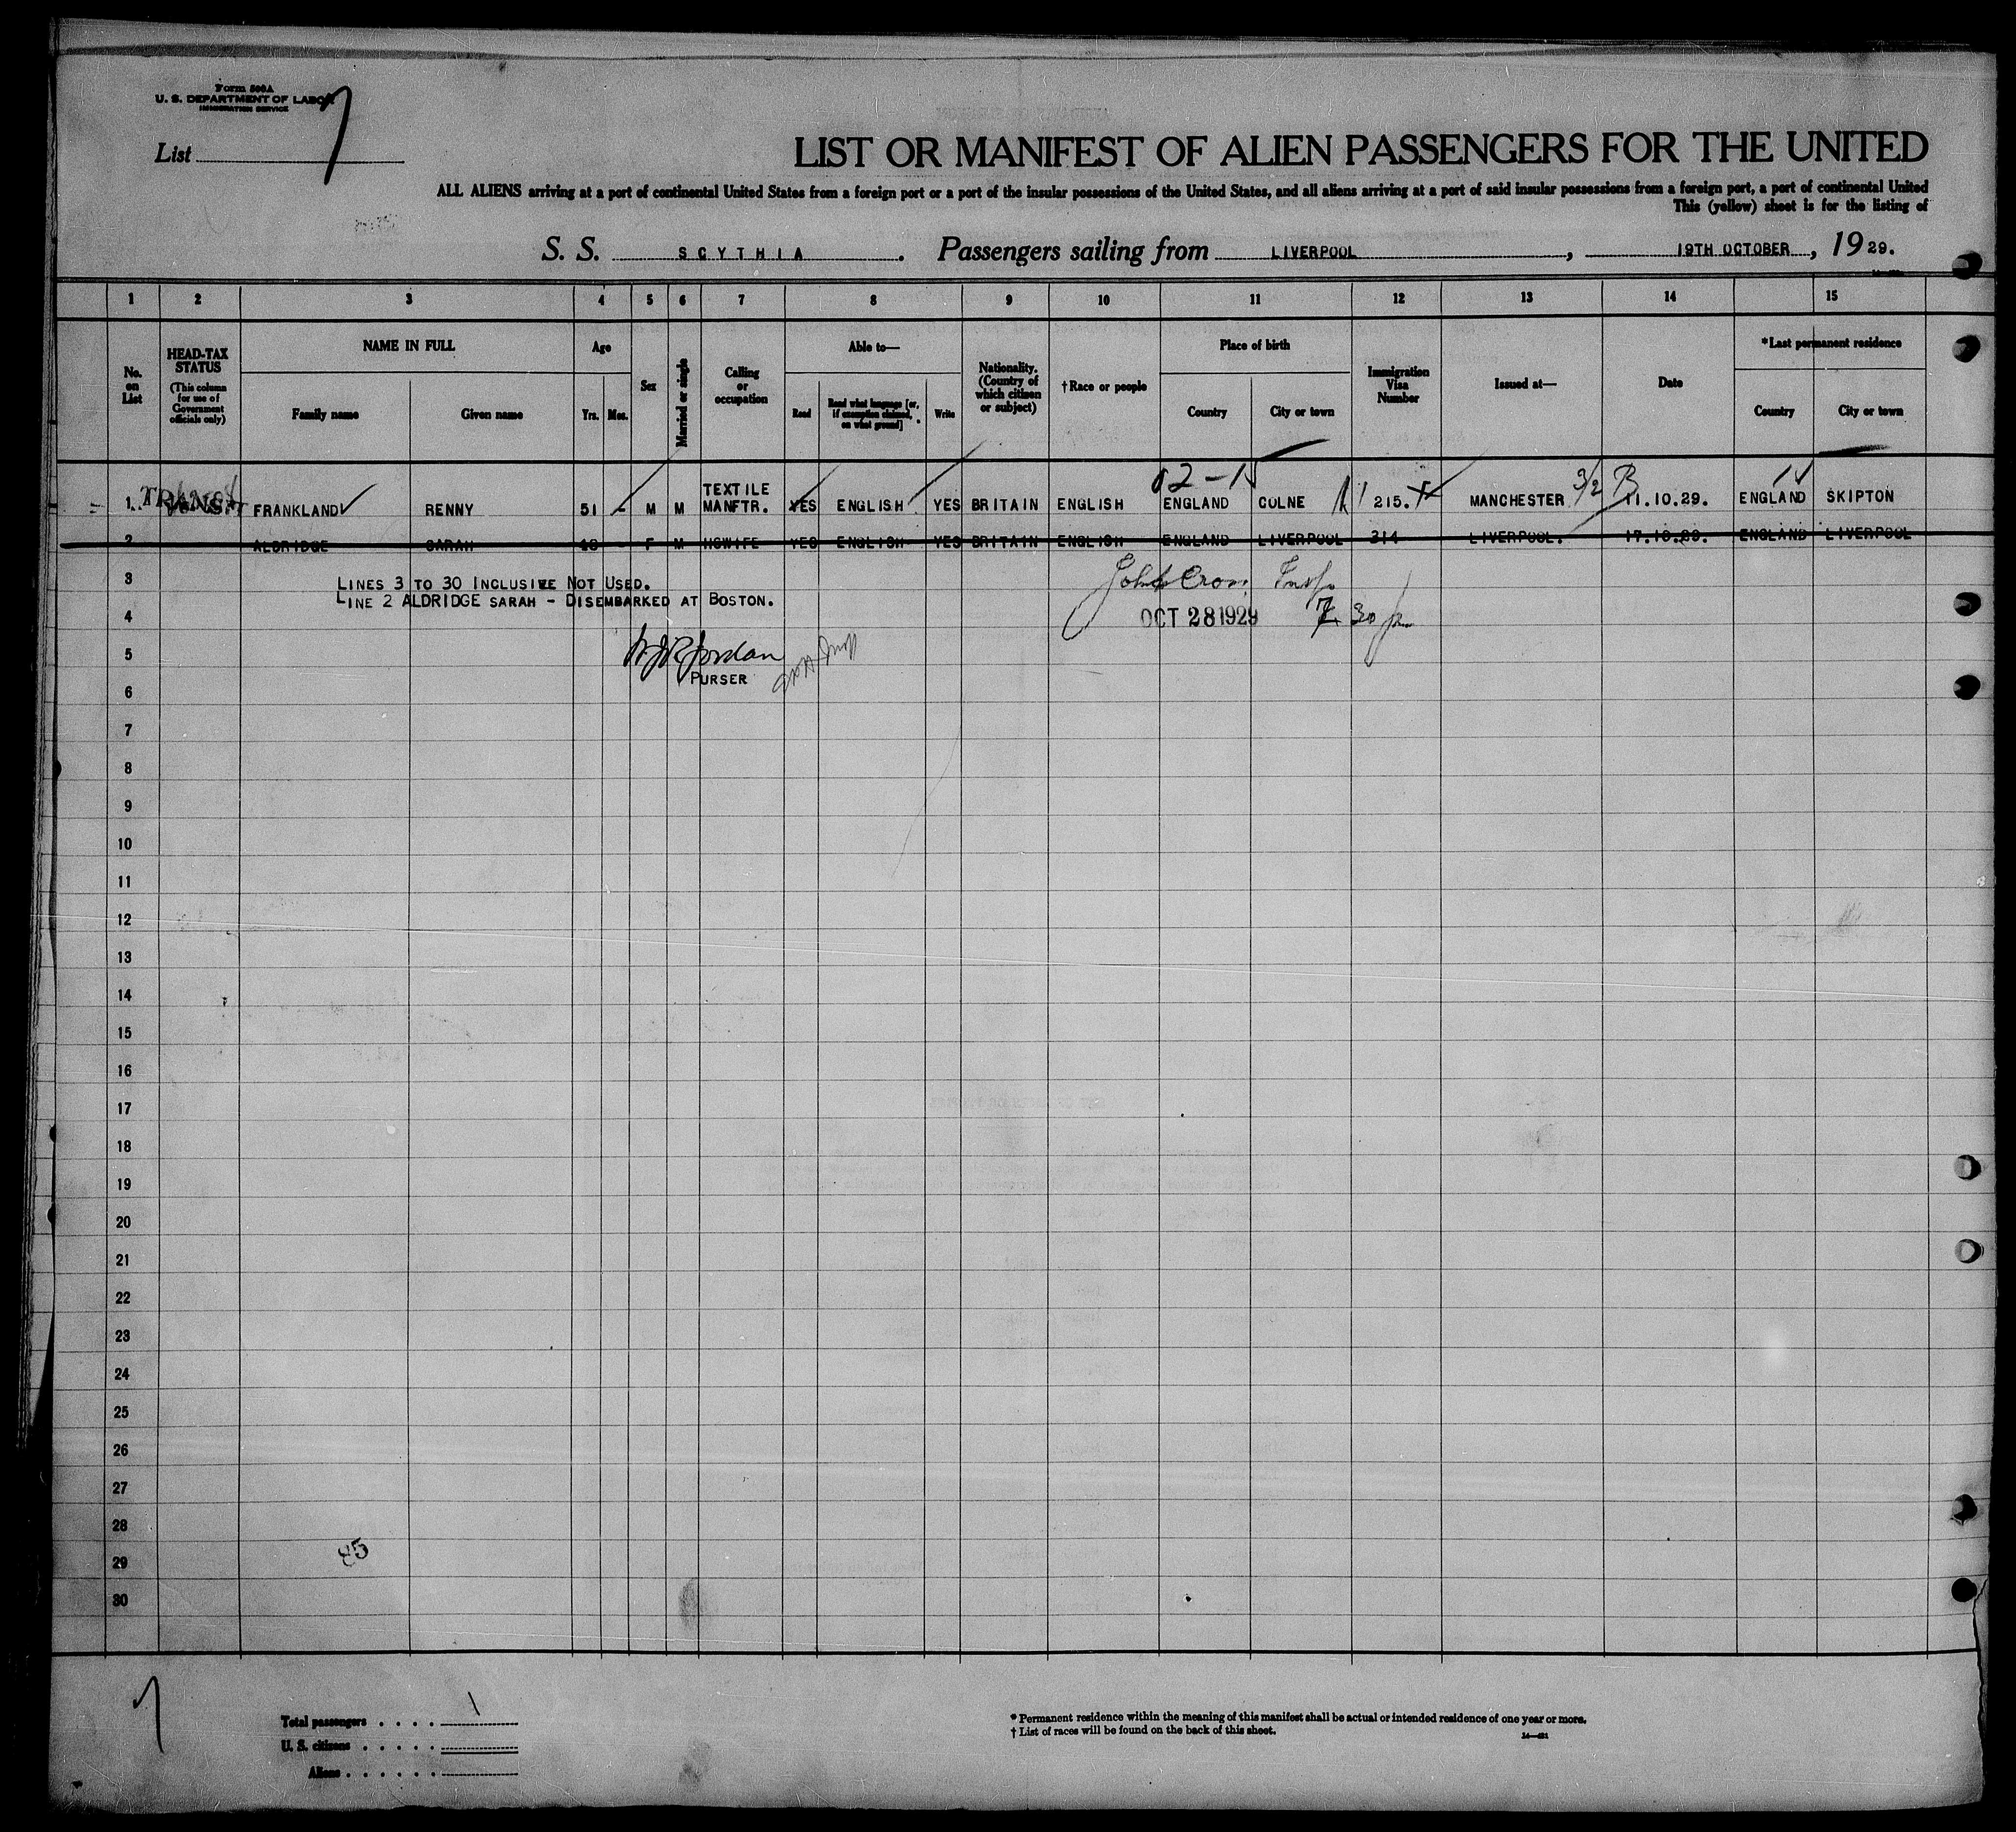 Form 500A
U. S. DEPARTMENT OF LABOR
IMMIGRATION SERVICE
List 7
LIST OR MANIFEST OF ALIEN PASSENGERS FOR THE UNITED
ALL ALIENS arriving at a port of continental United States from a foreign port or a port of the insular possessions of the United States, and all aliens arriving at a port of said insular possessions from a foreign port, a port of continental United
This (yellow) sheet is for the listing of
S. S. SCYTHIA. Passengers sailing from LIVERPOOL, 19TH OCTOBER, 1929.
1 2 3 4 5 6 7 8 9 10 11 12 13 14 15
No. on List
HEAD-TAX STATUS (This column for use of Government officials only)
NAME IN FULL
Family name Given name
Age
Yrs. Mos.
Sex
Married or single
Calling or occupation
Able to—
Read Read what language [or, if exemption claimed, on what ground] Write
Nationality. (Country of which citizen or subject)
†Race or people
Place of birth
Country City or town
Immigration Visa Number
Issued at—
Date
*Last permanent residence
Country City or town
02-1
1 TRANSIT FRANKLAND RENNY 51 - M M TEXTILE MANFTR. YES ENGLISH YES BRITAIN ENGLISH ENGLAND COLNE 215. MANCHESTER 3/2 B 11.10.29. ENGLAND SKIPTON
2 ALDRIDGE SARAH F M HSWIFE YES ENGLISH YES BRITAIN ENGLISH ENGLAND LIVERPOOL 314 LIVERPOOL. 17.10.29. ENGLAND LIVERPOOL
3
LINES 3 TO 30 INCLUSIVE NOT USED.
LINE 2 ALDRIDGE SARAH - DISEMBARKED AT BOSTON.
4
OCT 28 1929 7 30 p
5
Jordan
PURSER
6
7
8
9
10
11
12
13
14
15
16
17
18
19
20
21
22
23
24
25
26
27
28
29
85
30
7
Total passengers . . . . 1
U. S. citizens . . . . .
Aliens . . . . . .
* Permanent residence within the meaning of this manifest shall be actual or intended residence of one year or more.
† List of races will be found on the back of this sheet.